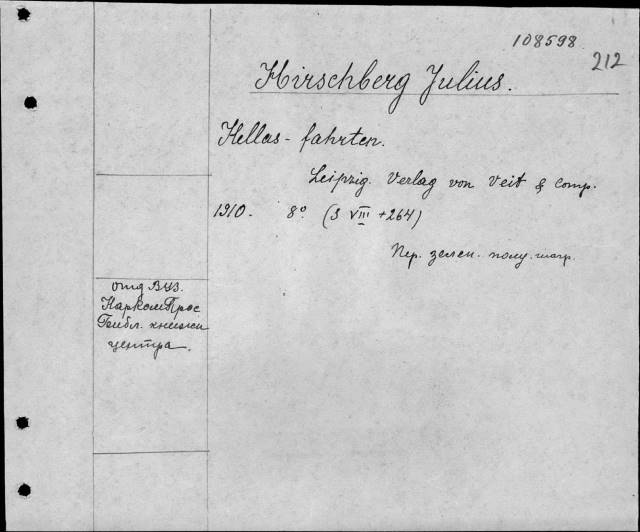 108598
212
Hirschberg Julius.
Hellas-fahrten.
Leipzig. Verlag von Veit & Comp.
1910. 8° (S VIII + 264)
Пер. зелен. полу. шагр.
отд ВУЗ.
НаркомПрос
Библ. книжн
центра.